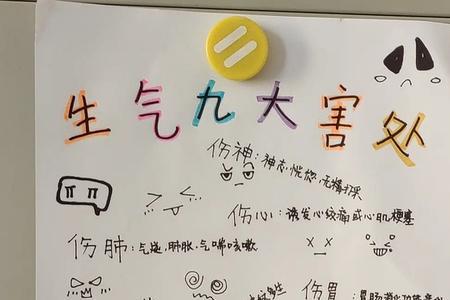 生气九大害处
伤神：神志恍惚，无精打采
伤心：诱发心绞痛或心肌梗塞
伤肺：气逆，肺胀，气喘咳嗽
伤胃：胃肠消化功能